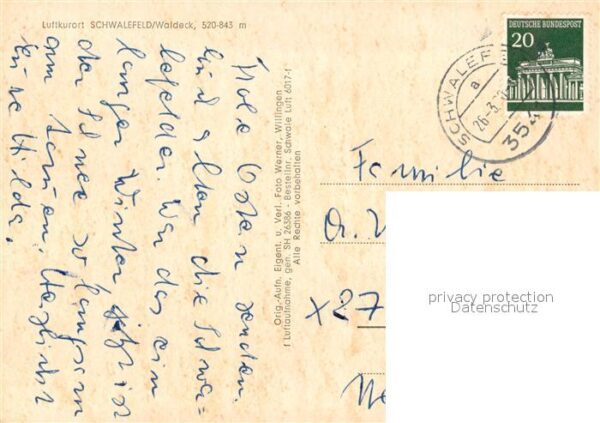 Luftkurort SCHWALEFELD/Waldeck, 520-843 m
Frohe Ostern senden
Euch allen die Schwa=
lefelder. War das ein
langer Winter jetzt ist
der Schnee so langsam
am tauen. Herzlichst
Eure Hilda.
Orig.-Aufn. Eigent. u. Verl. Foto Werner, Willingen
f Luftaufnahme, gen. SH 26386 - Bestellnr. Schwale Luft 6017-f
Alle Rechte vorbehalten
DEUTSCHE BUNDESPOST
20
SCHWALEF
a
26-3
354
Familie
x 27
privacy protection
Datenschutz